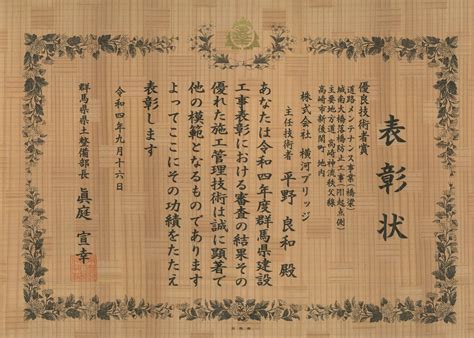 表彰状
優良技術者賞
道路メンテナンス事業(橋梁)
城南大橋落橋防止工事(附起点側)
主要地方道 高崎神流秩父線
高崎市新後閑町 地内
株式会社 横河ブリッジ
主任技術者 平野 良和 殿
あなたは令和四年度群馬県建設
工事表彰における審査の結果その
優れた施工管理技術は誠に顕著で
他の模範となるものであります
よってここにその功績をたたえ
表彰します
令和四年九月十六日
群馬県県土整備部長 眞庭 宣幸